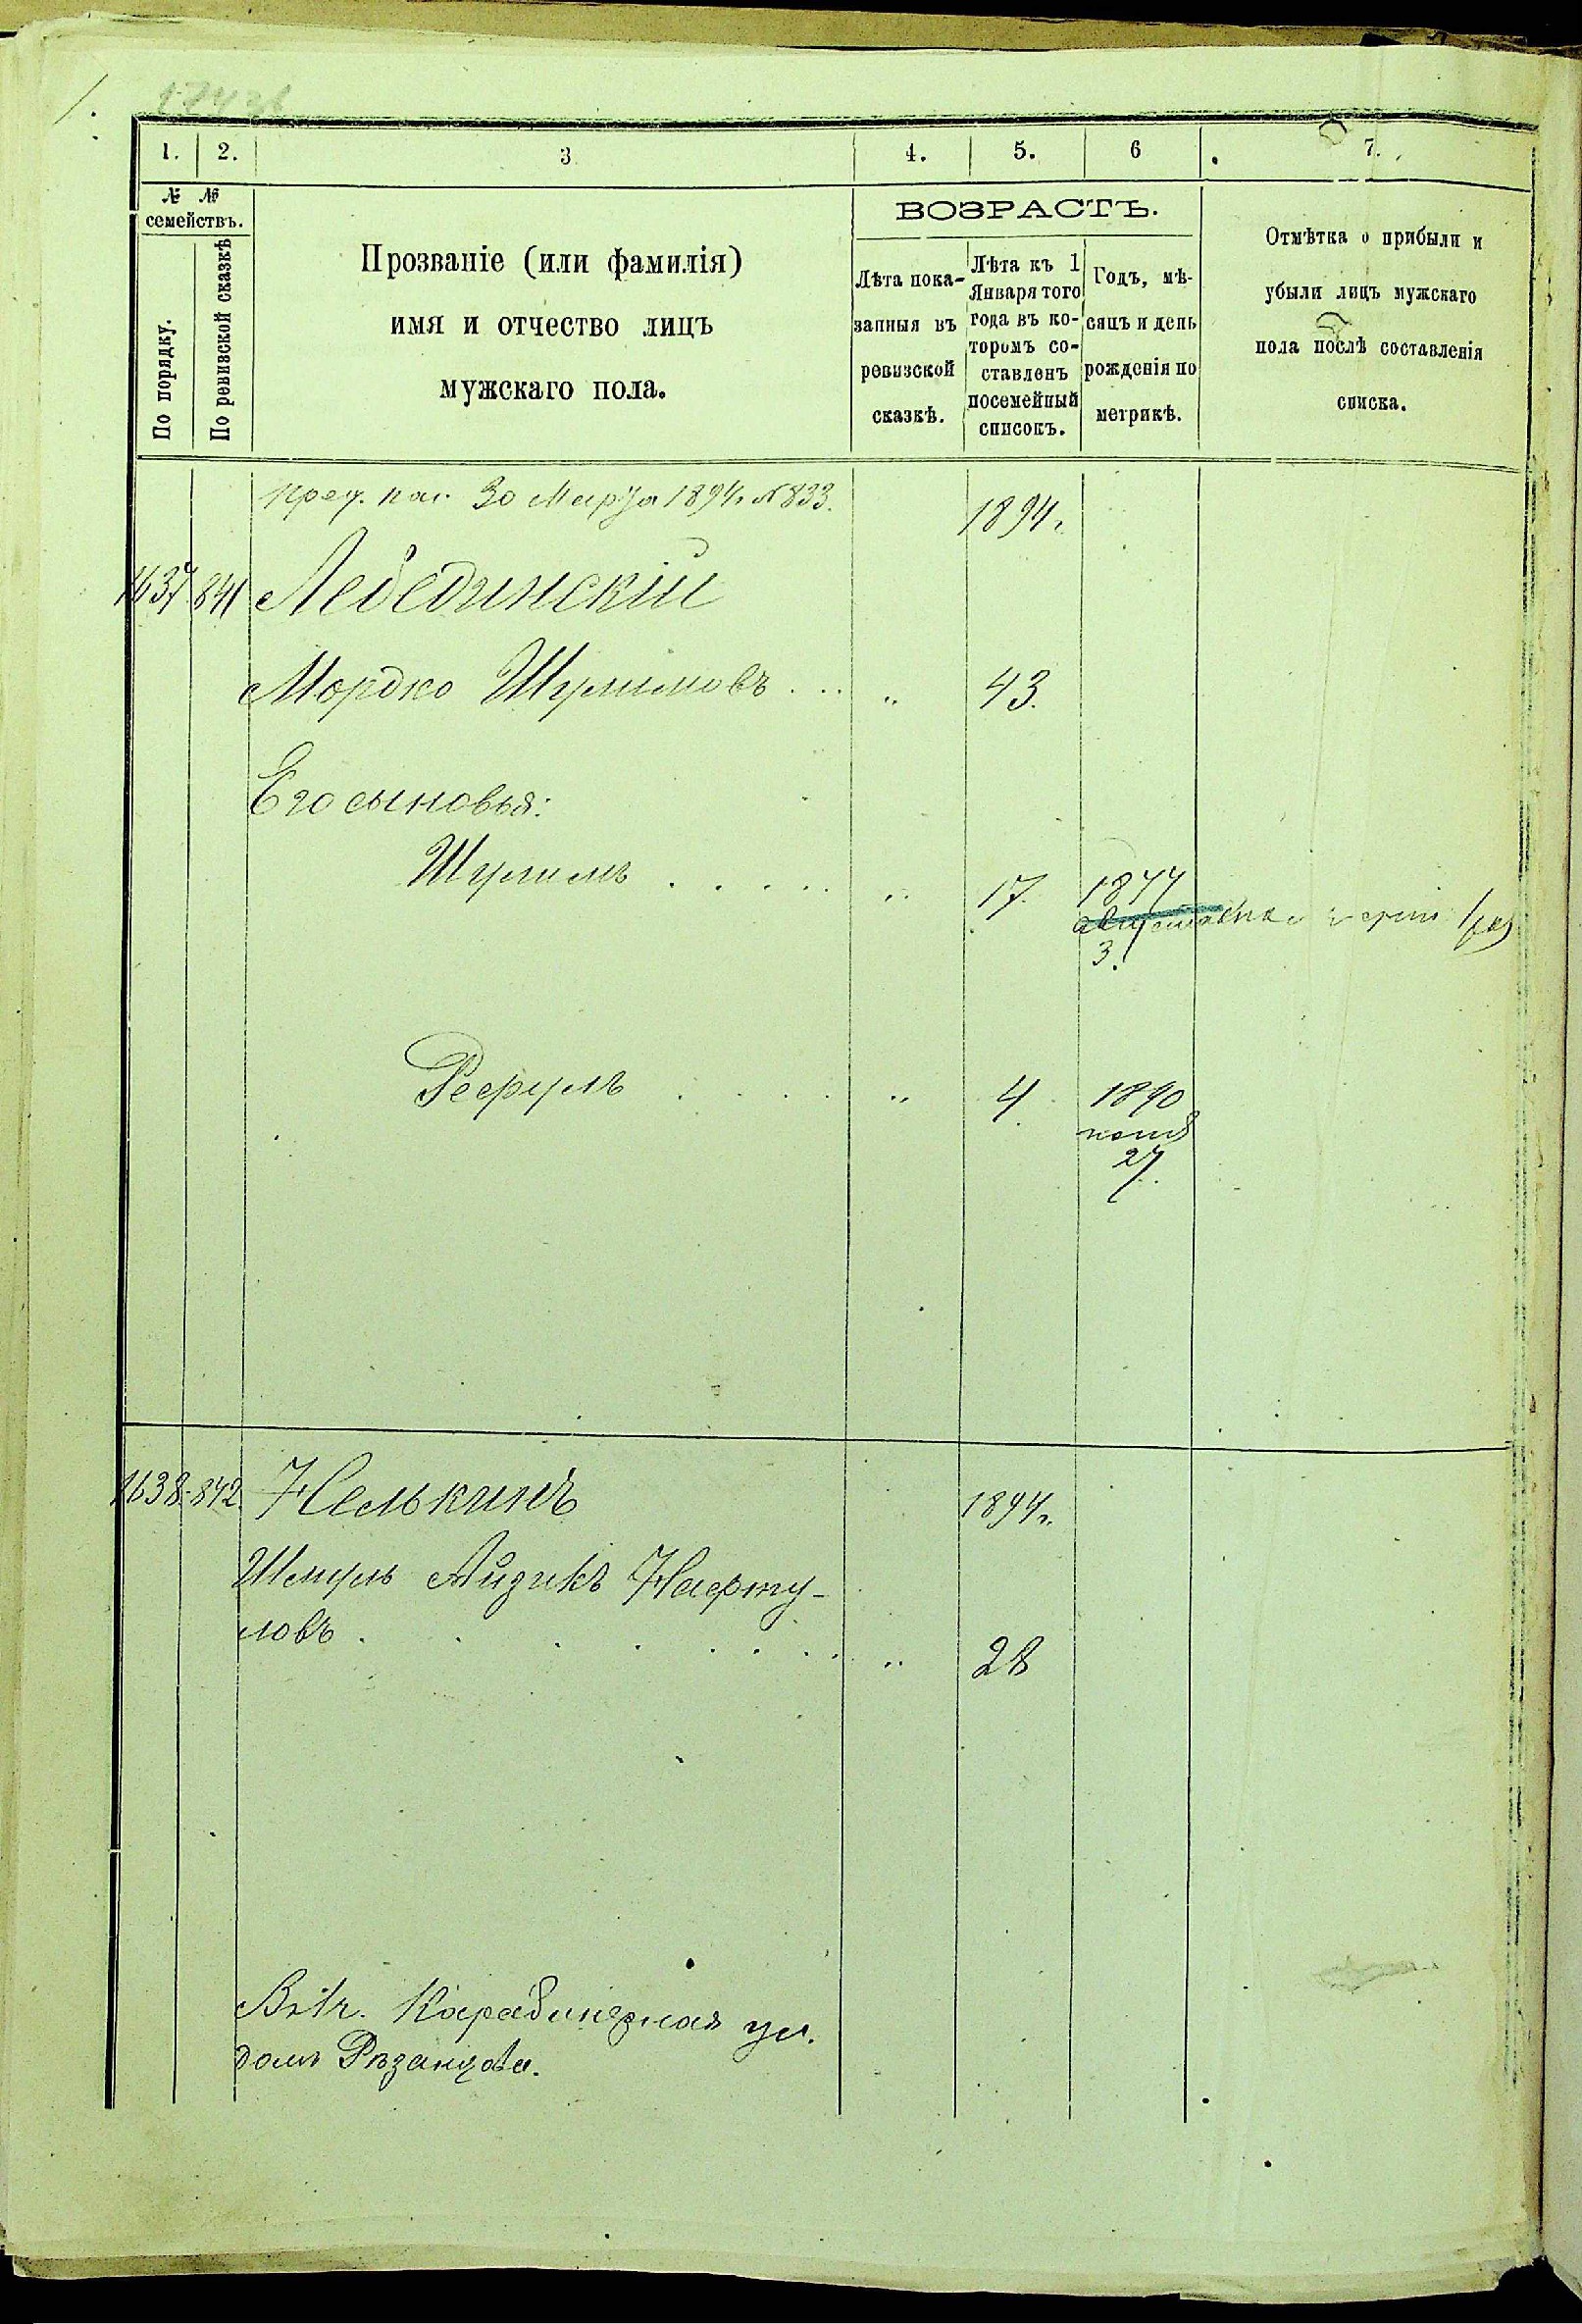 17431
1. 2. 3 4. 5. 6 7.
№ №
семействъ.
По порядку.
По ревизской сказкѣ
Прозваніе (или фамилія)
имя и отчество лицъ
мужскаго пола.
ВОЗРАСТЪ.
Лѣта пока-
занныя въ
ревизской
сказкѣ.
Лѣта къ 1
Января того
года въ ко-
торомъ со-
ставленъ
посемейный
списокъ.
Годъ, мѣ-
сяцъ и день
рожденія по
метрикѣ.
Отмѣтка о прибыли и
убыли лицъ мужскаго
пола послѣ составленія
списка.
30 Марта 1894 г. № 833.
1894 г.
1637 841 Лебединскій
Мордко Шулимовъ . . . „ 43.
Его сыновья:
Шулимъ . . . . . „ 17. 1877
августа
3.
Рефулъ . . . . „ 4. 1890
27.
1638. 842. Нелькинъ 1894 г.
Шмуль Айзикъ Нафту-
ловъ . . . . . . . . „ 28
Карабинерная ул.
домъ Рѣзанцова.